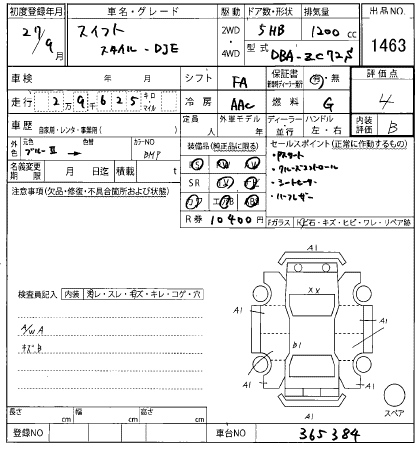 初度登録年月 車名・グレード 駆動 ドア数・形状 排気量 出品NO.
27/9月 スイフト スタイル-DJE 2WD・4WD 5HB 1200cc 1463
型式 DBA-ZC72S
車検 年 月 シフト FA 保証書 有・無 評価点
走行 2万9千625 キロ・マイル 冷房 AAC 燃料 G 4
車歴 自家用・レンタ・事業用( ) 定員 人 外車モデル 年 ディーラー・並行 ハンドル 左・右 内装評価 B
外色 元色 ブルーⅡ 色替 カラーNO
装備品(純正品に限る) セールスポイント(正常に作動するもの)
名義変更期限 月 日迄 積載 t
SR
・Pスタート
・クルーズコントロール
・シートヒーター
・ハーフレザー
注意事項(欠品・修復・不具合箇所および状態)
R券 10400円 Fガラス 石・キズ・ヒビ・ワレ・リペア跡
検査員記入 内装 スレ・キズ・キレ・コゲ・穴
A/wA
キズB
A1
A1
A1
XX
B1
A1
A1
A1
スペア
長さ cm 幅 cm 高さ cm
登録NO 車台NO 365384